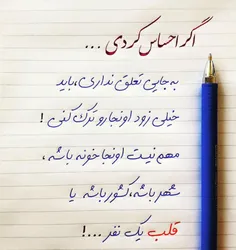 اگر احساس کردی ...
به جایی تعلق نداری، باید
خیلی زود اونجارو ترک کنی !
مهم نیست اونجا خونه باشه ،
شهر باشه، کشور باشه یا
قلب یک نفر ...!